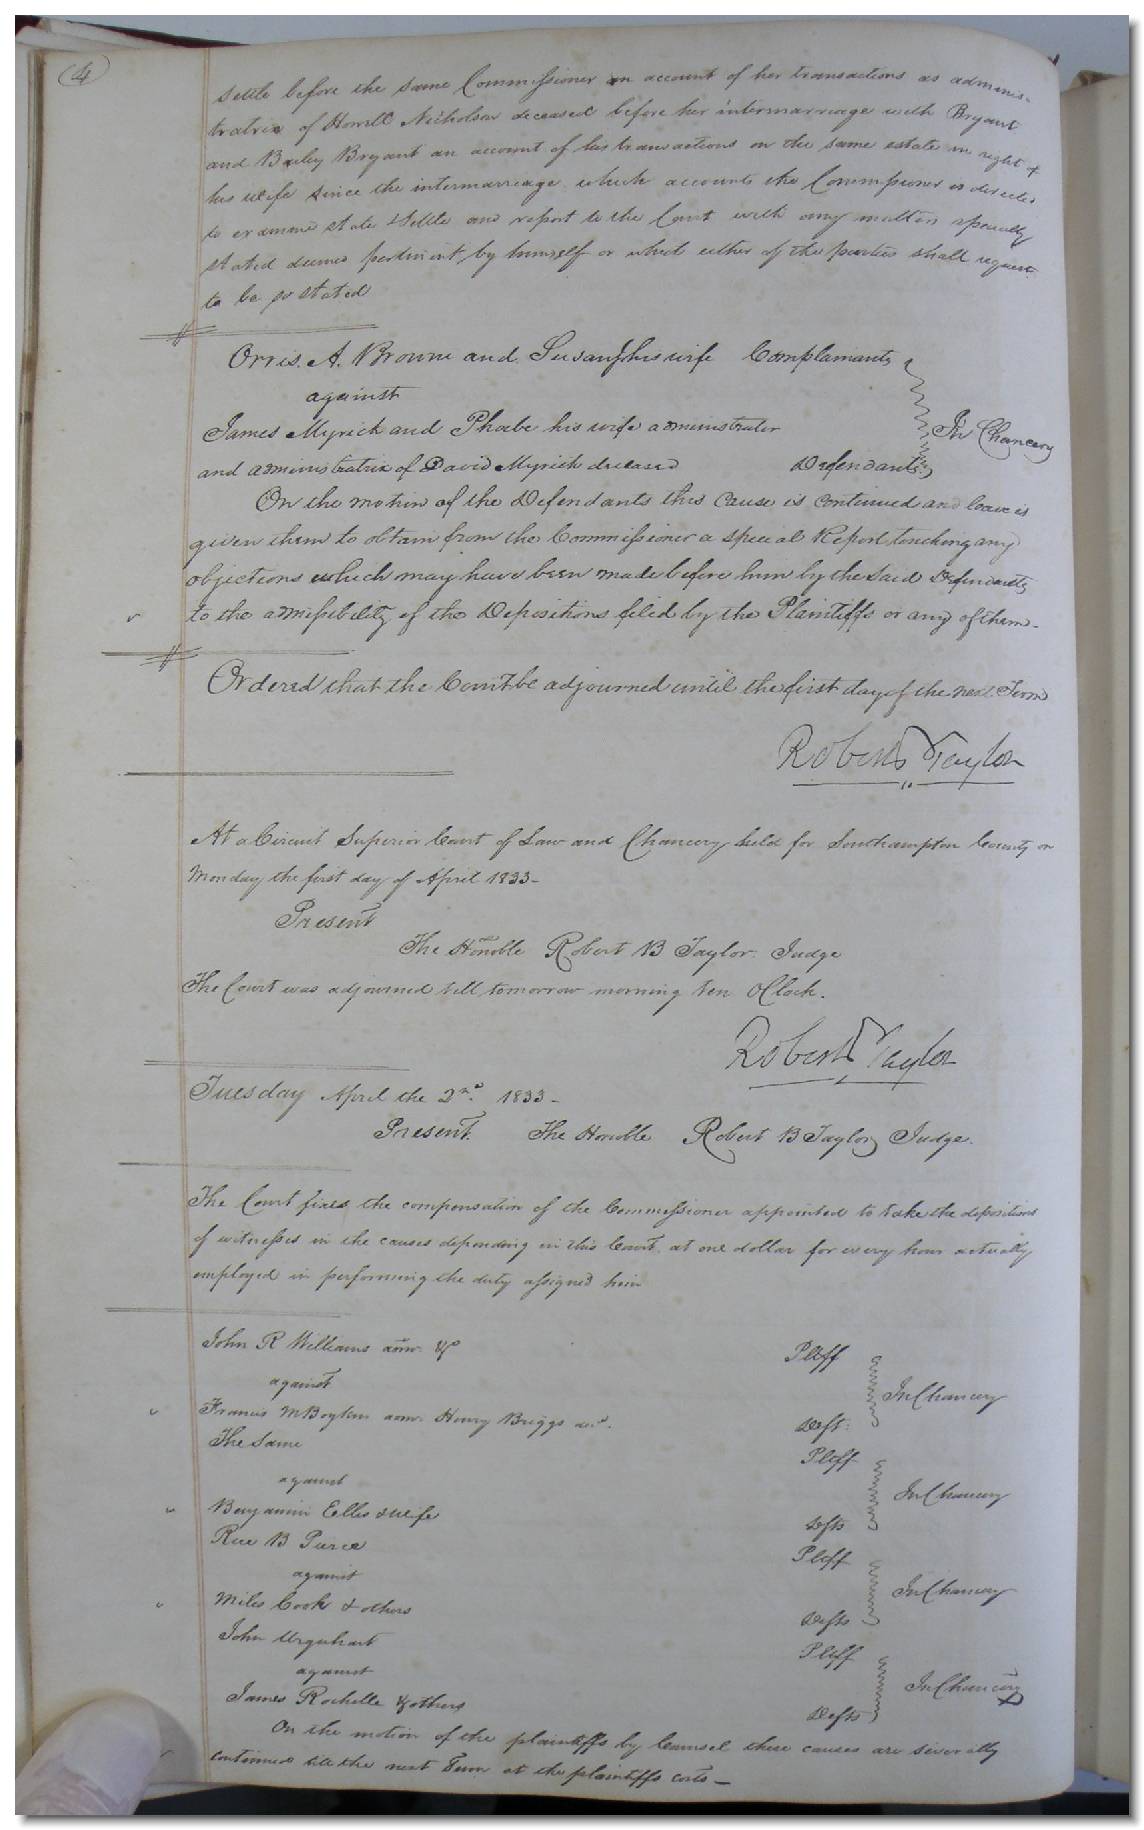 4
settle before the same Commissioner an account of her transactions as adminis-
tratrix of Howell Nicholson deceased before her intermarriage with Bryant
and Bailey Bryant an account of his transactions on the same estate in right of
his wife since the intermarriage, which accounts the Commissioner is directed
to examine state & settle and report to the Court with any matters specially
stated deemed pertinent by himself or which either of the parties shall request
to be so stated
Orris. A. Browne and Susan his wife Complainants
against
In Chancery
James Myrick and Phoebe his wife administrator
and administratrix of David Myrick deceased Defendants
On the motion of the Defendants this cause is continued and leave is
given them to obtain from the Commissioner a special Report touching any
objections which may have been made before him by the said Defendants
to the admissibility of the Depositions filed by the Plaintiffs or any of them-
Ordered that the Court be adjourned until the first day of the next Term
Robert B Taylor
At a Circuit Superior Court of Law and Chancery held for Southampton County on
Monday the first day of April 1833-
Present
The Honoble Robert B Taylor Judge
The Court was adjourned till tomorrow morning ten OClock.
Robert B Taylor
Tuesday April the 2nd. 1833-
Present. The Honoble Robert B Taylor Judge.
The Court fixes the compensation of the Commissioner appointed to take the depositions
of witnesses in the causes depending in this Court, at one dollar for every hour actually
employed in performing the duty assigned him
John R Williams admr. &c Pltff
against
In Chancery
Francis M Boykin admr. Henry Briggs decd. Deft.
The Same Pltff
against
In Chancery
Benjamin Ellis & wife Defts
Rice B Pierce Pltff
against
In Chancery
Miles Cook & others Defts
John Urquhart Pltff
against
In Chancery
James Rochelle & others Defts
On the motion of the plaintiffs by Counsel these causes are severally
continued till the next Term at the plaintiffs costs-